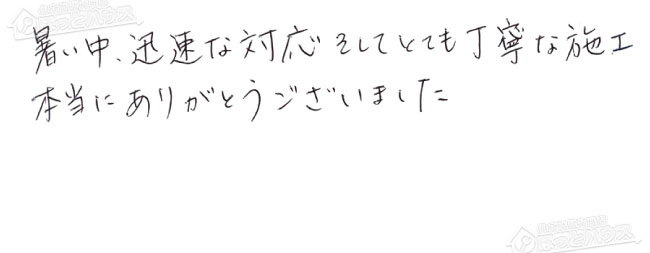 暑い中、迅速な対応そしてとても丁寧な施工
本当にありがとうございました